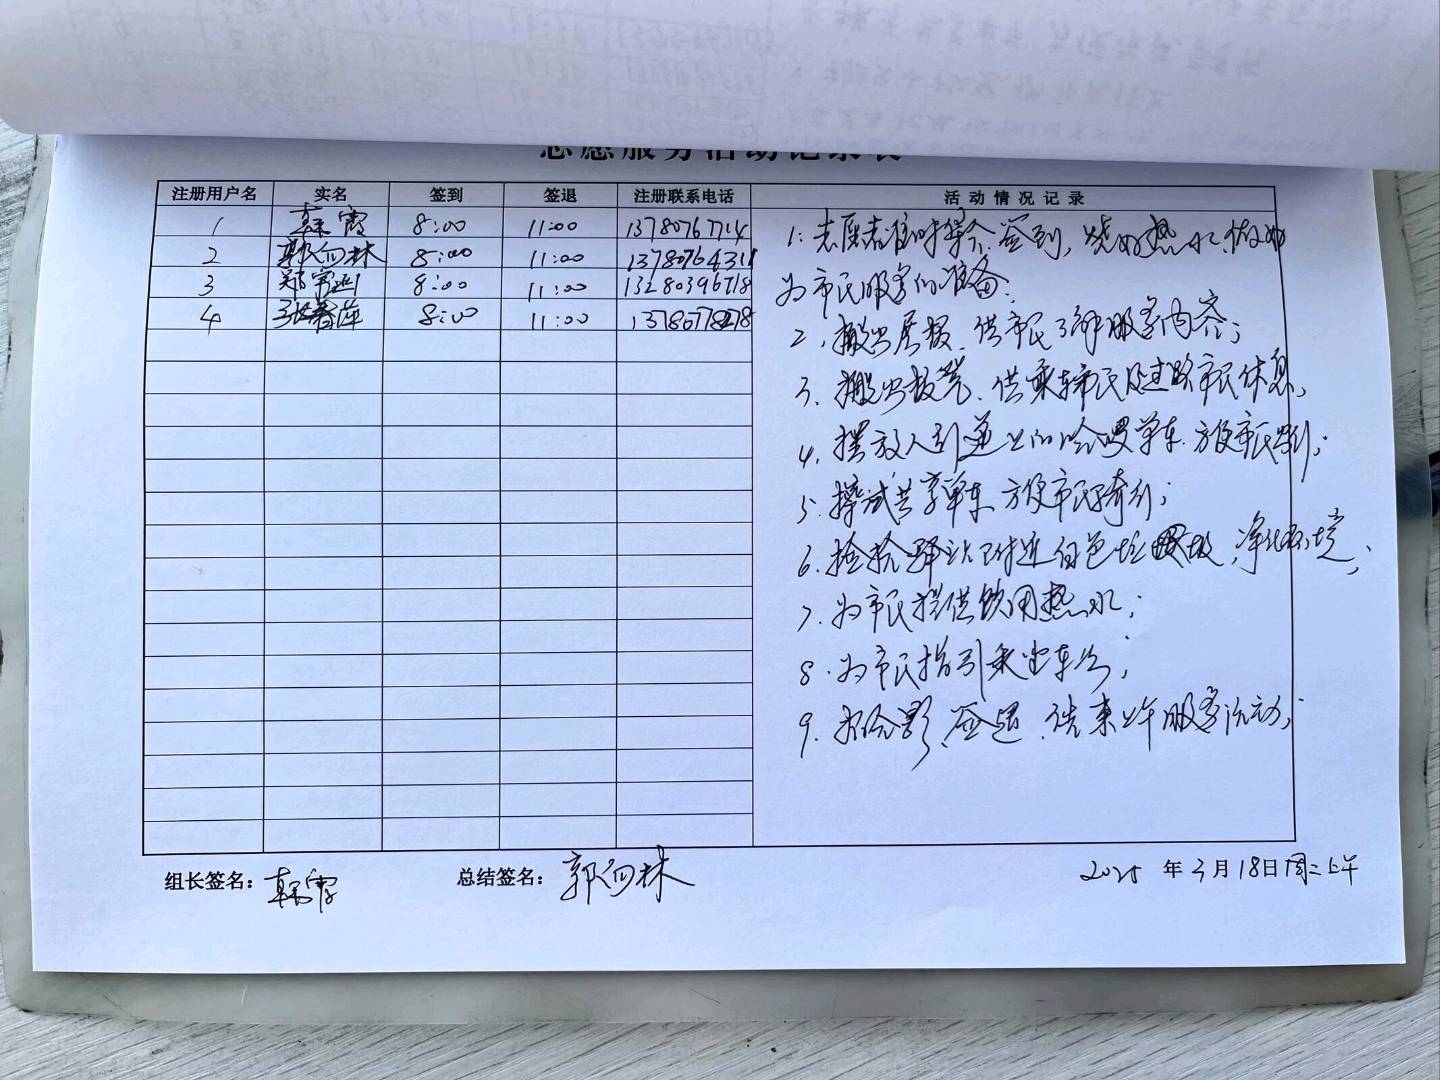 志愿服务活动记录表
注册用户名 实名 签到 签退 注册联系电话 活动情况记录
1 韩霞 8:00 11:00 13780767714
2 郭向林 8:00 11:00 1378076431
3 郑宇 8:00 11:00 13280396718
4 张春萍 8:00 11:00
1. 志愿者准时集合、签到,烧好热水,做好
为市民服务的准备;
2、搬出展板、供市民了解服务内容;
3、搬出板凳、供乘车市民及过路市民休息;
4、摆放人行道上的哈啰单车、方便市民骑行;
5、擦拭共享单车、方便市民骑行;
6、捡拾驿站附近白色垃圾,净化环境;
7、为市民提供饮用热水;
8、为市民指引乘坐车次;
9、合影、签退、结束上午服务活动;
组长签名: 韩霞 总结签名: 郭向林 2025 年 3 月 18 日 周二上午